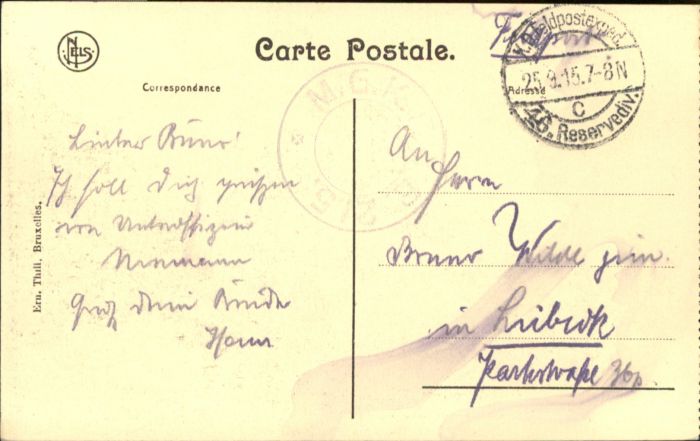 NELS
Carte Postale.
Feldpost
K.D. Feldpostexped.
25.9.15.7-8N
C
46. Reservediv.
Correspondance
Adresse
M.G.K.
215
Lieber Bruno!
Ich soll Dich grüßen
von Unteroffizier
Niemann
Gruß Dein Bruder
Hans
An
Herrn
Bruno Wilde jun.
in Lübeck
Parkstraße 36a.
Ern. Thill, Bruxelles.